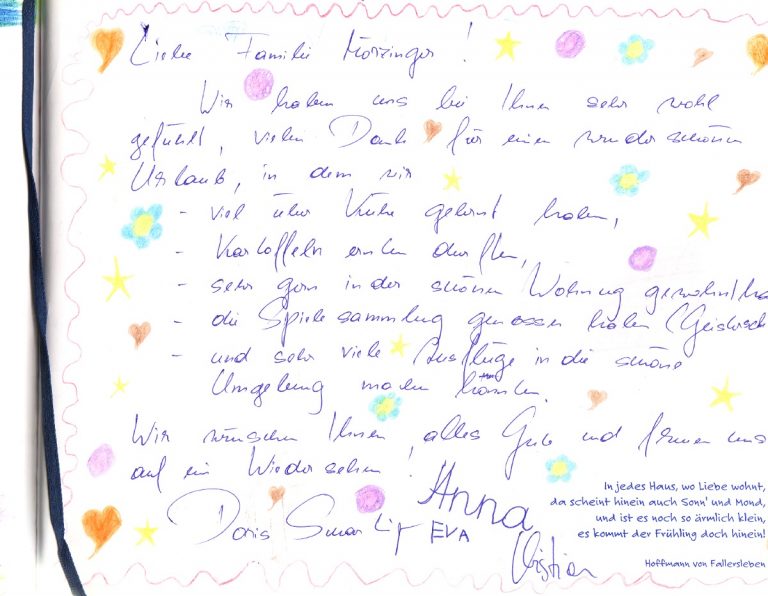 Liebe Familie Morzinger!
Wir haben uns bei Ihnen sehr wohl
gefühlt, vielen Dank für einen wunderschönen
Urlaub, in dem wir
- viel über Kühe gelernt haben,
- Kartoffeln ernten durften,
- sehr gern in der schönen Wohnung gewohnt
- die Spielesammlung genossen haben
- und sehr viele Ausflüge in die schöne
Umgebung machen konnten.
Wir wünschen Ihnen alles Gute und freuen uns
auf ein Wiedersehen!
Anna
Doris EVA
Christian
In jedes Haus, wo Liebe wohnt,
da scheint hinein auch Sonn' und Mond,
und ist es noch so ärmlich klein,
es kommt der Frühling doch hinein!
Hoffmann von Fallersleben